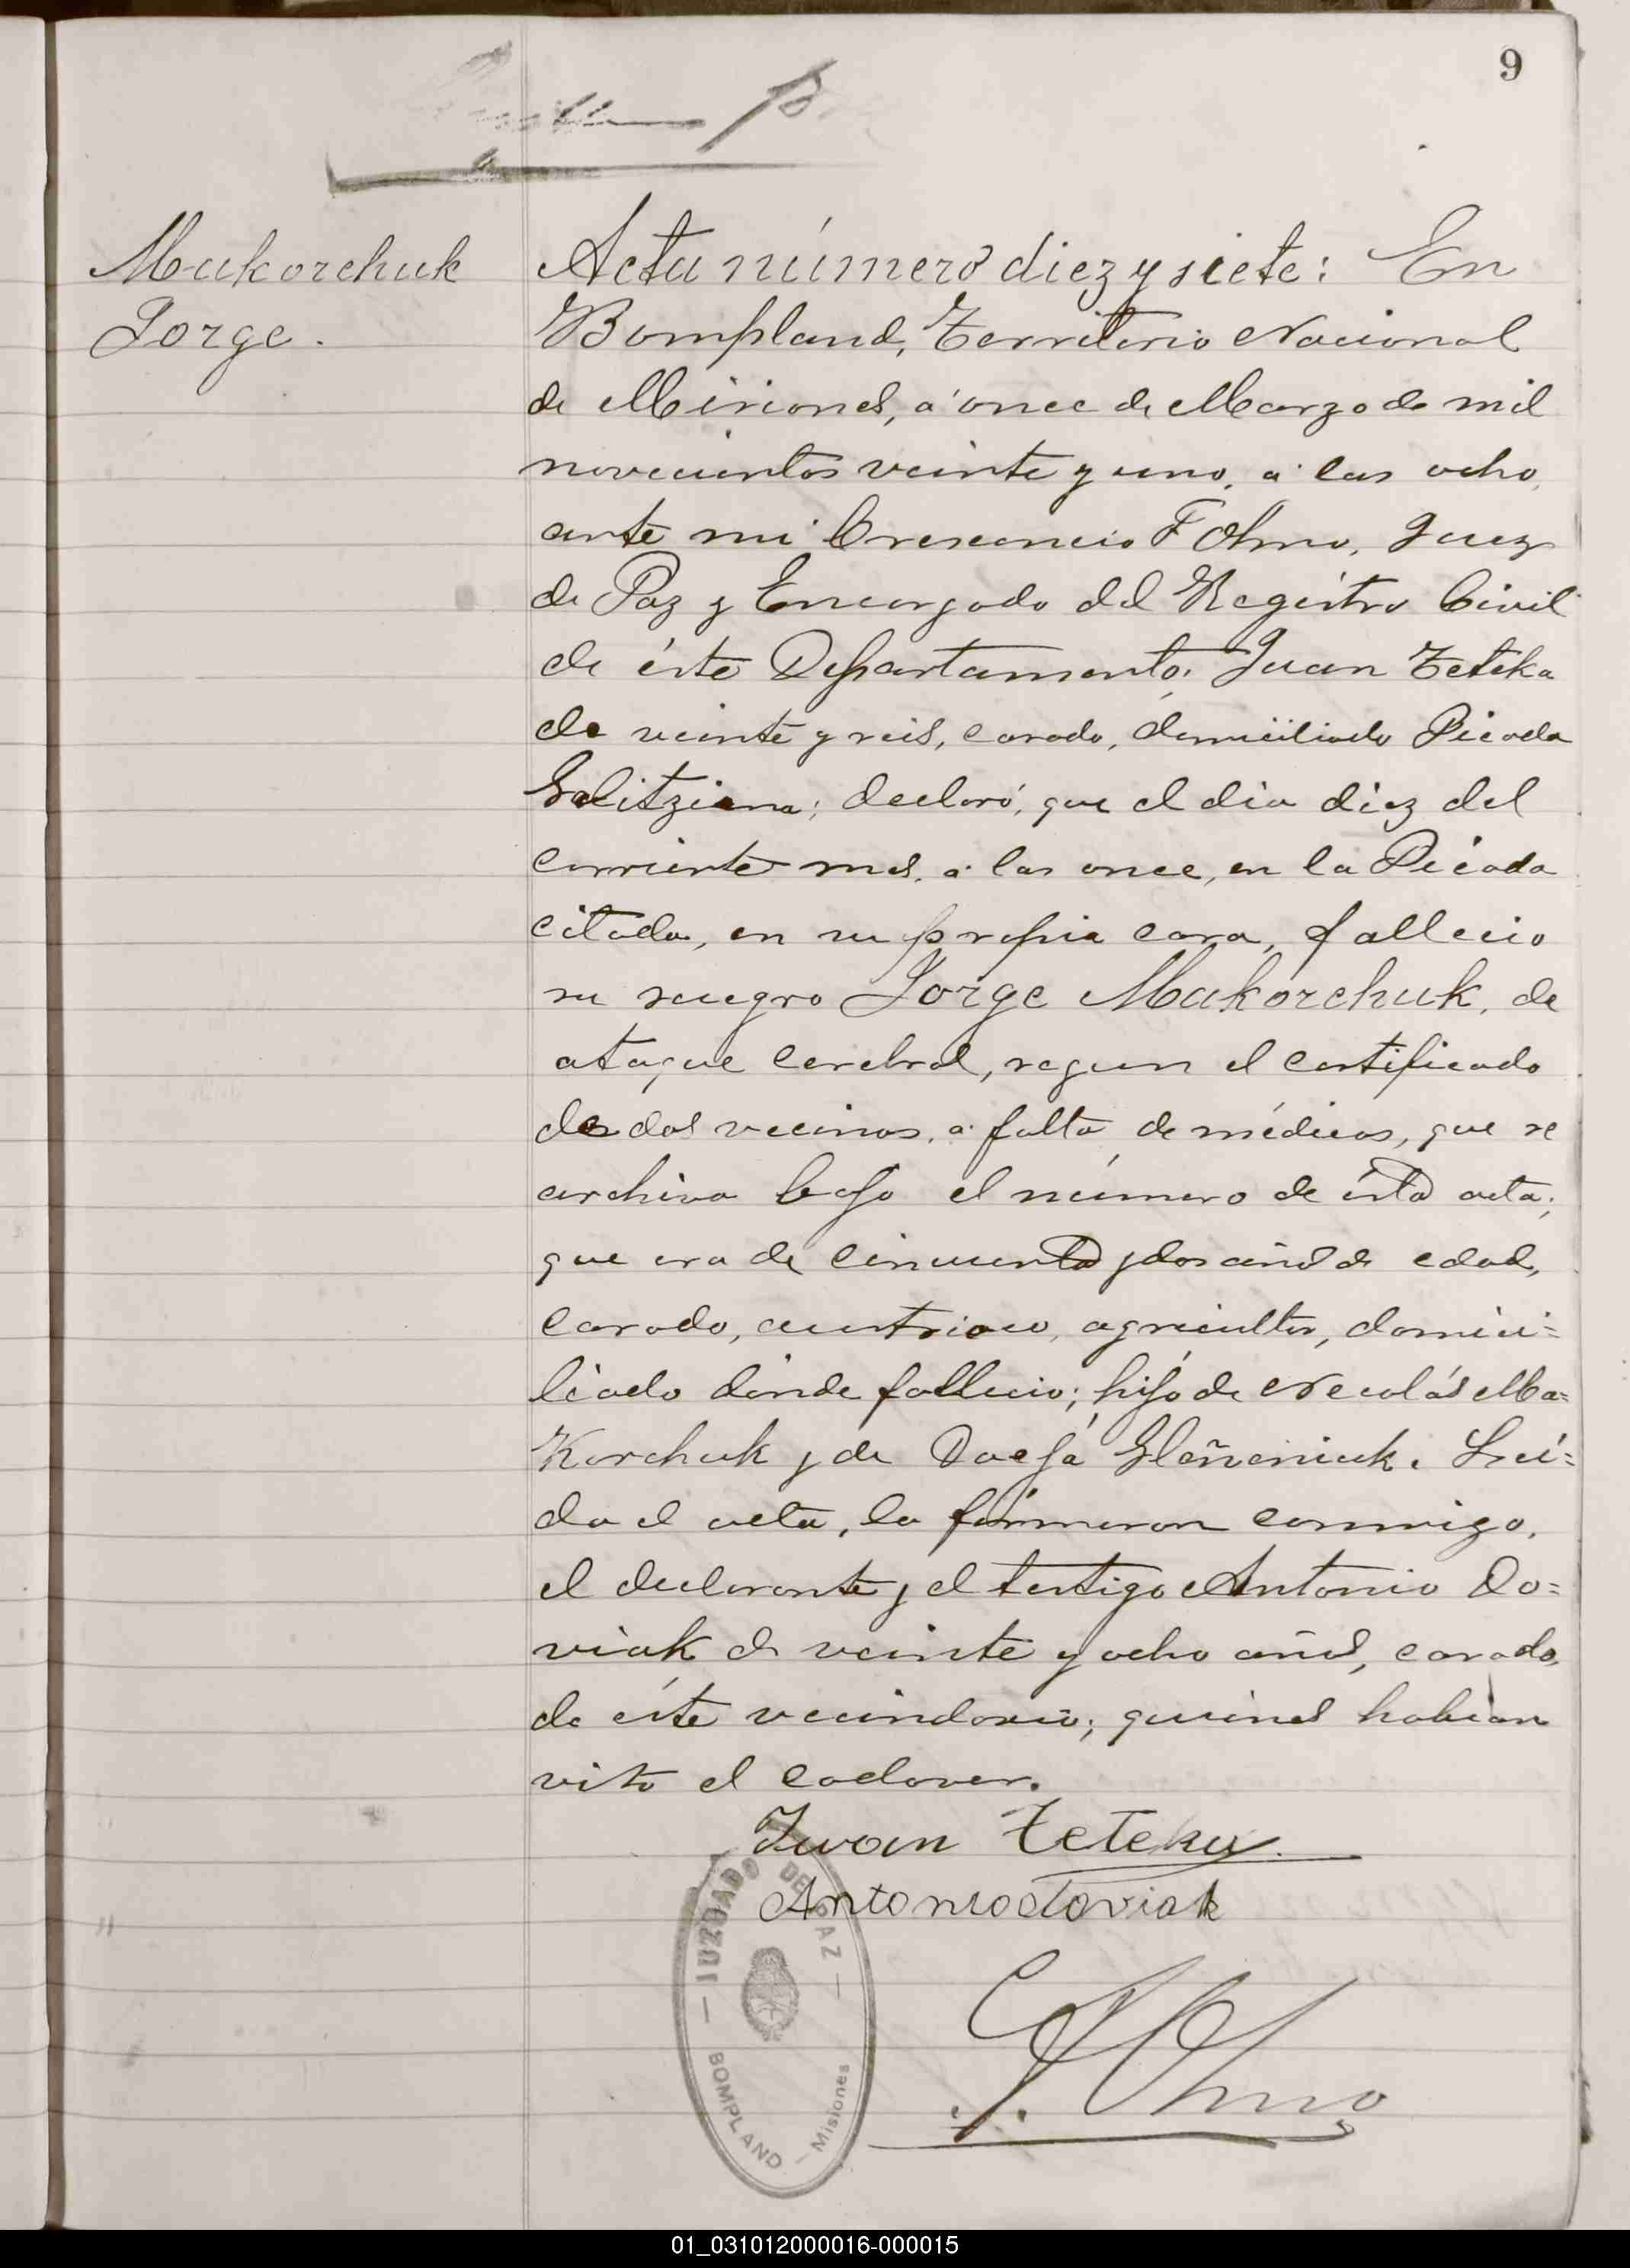 9
Makorchuk
Jorge.
Acta número diez y siete: En
Bompland, Territorio Nacional
de Misiones, a once de Marzo de mil
novecientos veinte y uno, a las ocho,
ante mi Crescencio F Olmo, Juez
de Paz y Encargado del Registro Civil
de éste Departamento, Juan Teteka
de veinte y seis, casado, domiciliado Picada
Galitziana; declaró, que el dia diez del
corriente mes, a las once, en la Picada
citada, en su propia casa, fallecio
su suegro Jorge Makorchuk, de
ataque cerebral, segun el certificado
de dos vecinos, a falta de médicos, que se
archiva bajo el número de ésta acta;
que era de cincuenta y dos años de edad,
casado, austriaco, agricultor, domici=
liado dónde fallecio; hijo de Nicolás Ma=
Korchuk y de. Leí=
da el acta, la firmaron conmigo,
el declarante y el testigo Antonio Do=
viak de veinte y ocho años, casado,
de éste vecindario; quienes habian
visto el cadaver.
Iwan Teteka
Antonio doviak
CF Olmo
JUZGADO DE PAZ
BOMPLAND - Misiones
01_031012000016-000015